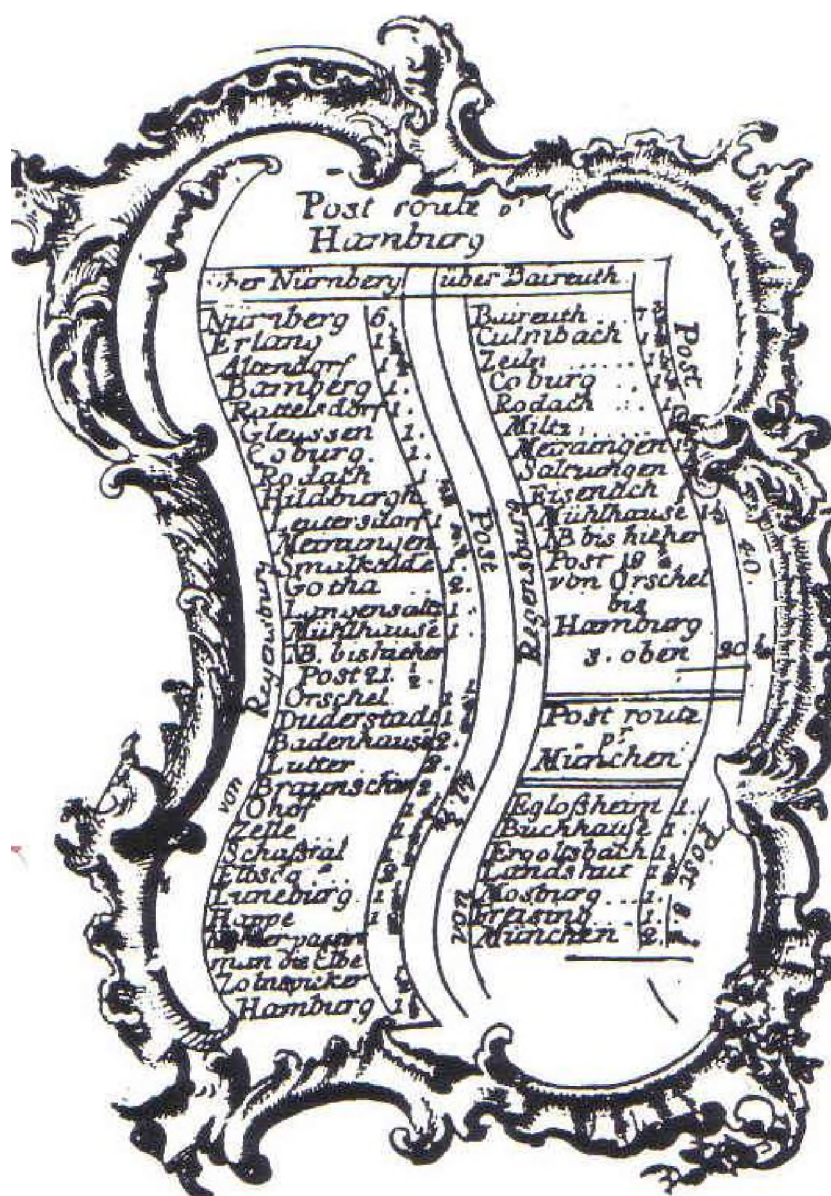 Post route pr
Hamburg
über Nürnberg
Nürnberg 6
Erlang 1½
Altendorf 1½
Bamberg 1.
Rattelsdorf 1.
Gleussen 1.
Coburg. 1.
Rodach 1
Hildburgh
Leutersdorf 1
Meinungen
Smalkalde 1.
Gotha 2.
Langensaltz 1.
Mühlhause 1.
NB. bis hieher
Post 21. ½.
Orschel
Duderstadt 1½
Badenhause 2.
Lutter 2.
Braunschw 2
Ohof
Zelle
Schafstal
Ebsdg
Luneburg 1½
Hoppe 1
man die Elbe
Zolnspicker
Hamburg 1½
von Regensburg
Post
über Baireuth
Baireuth
Culmbach
Zeiln
Coburg
Rodach
Miltz
Meinungen
Saltzungen
Eisenach
Mühlhause 1½
NB bis hieher
Post 19 ½
von Orschel
bis
Hamburg
s. oben 20 ½
Post
40.
von Regensburg
Post route
pr
München
Egloßheim 1.
Buchhause 1.
Ergoltsbach 1
Landshut
Mosburg 1.
Freising 1.
München 2.
Post 8½